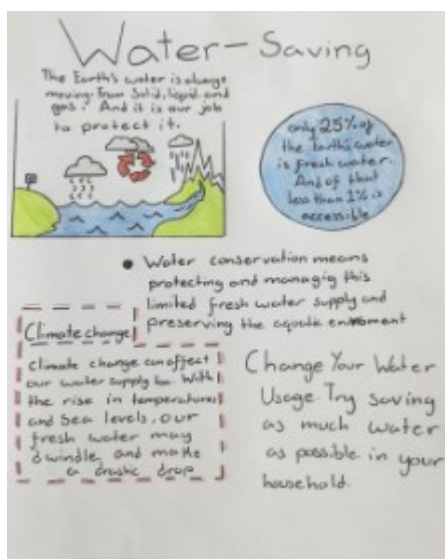 Water-Saving
The Earth's water is always
moving. From Solid, liquid and
gas. And it is our job
to protect it.
only 25% of
the Earth's water
is fresh water.
And of that
less than 1% is
accessible
• Water conservation means
protecting and managig this
limited fresh water supply and
preserving the aquatic
Climate change
Climate change can affect
our water supply too. With
the rise in temperatures
and sea levels, our
fresh water may
dwindle and make
a drastic drop
Change Your Water
Usage. Try saving
as much water
as possible in your
household.